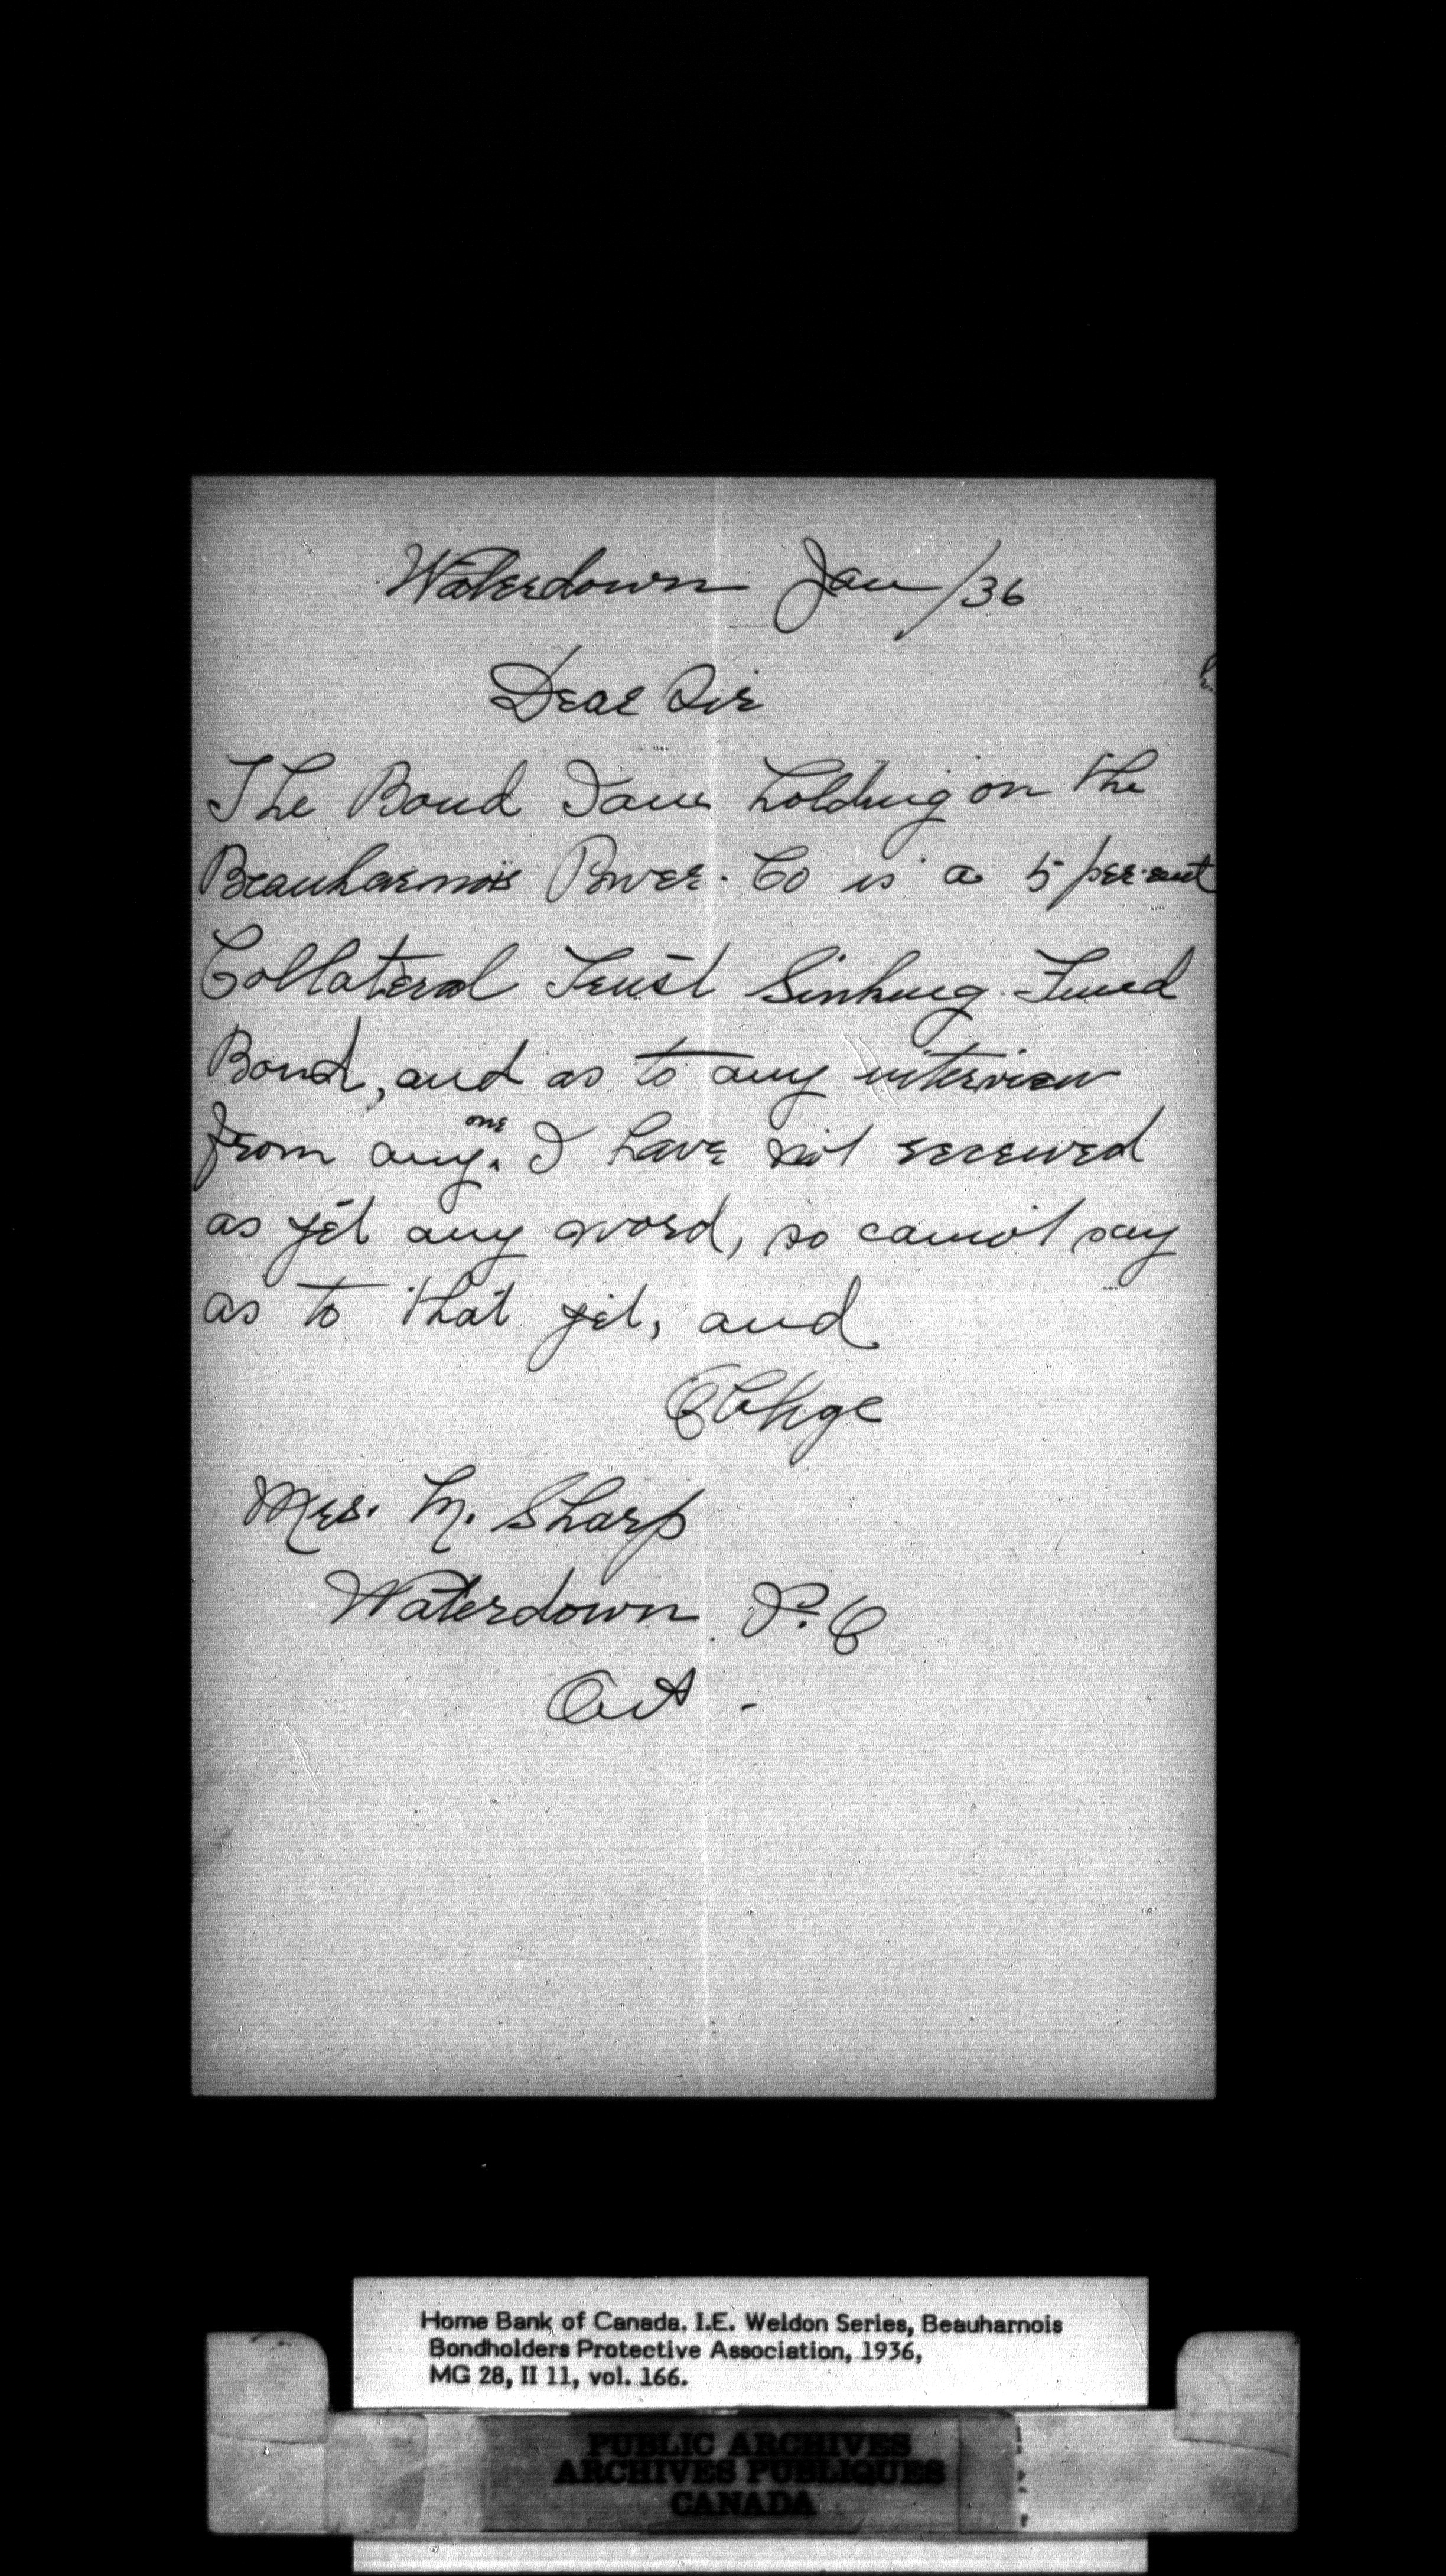 Waterdown Jan/36
Dear Sir
The Bond I am holding on the
Beauharnois Power. Co is a 5 per cent
Collateral Trust Sinking Fund
Bond, and as to any interview
from any one I have not received
as yet any word, so cannot say
as to that yet, and
Oblige
Mrs. M. Sharp
Waterdown P.O
Ont -
Home Bank of Canada. I.E. Weldon Series, Beauharnois
Bondholders Protective Association, 1936,
MG 28, II 11, vol. 166.
PUBLIC ARCHIVES
ARCHIVES PUBLIQUES
CANADA